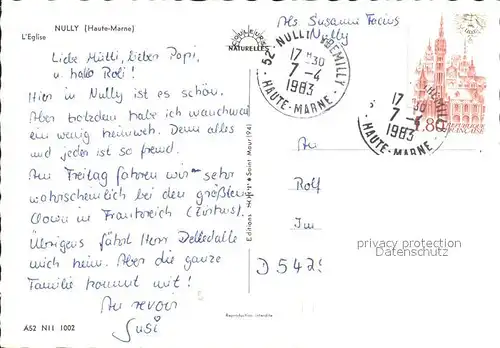 NULLY (Haute-Marne)
L'Eglise
COULEURS
NATURELLES
Abs Susanne
Nully
Liebe Mutti, lieber Papi,
u. hallo Roli!
Hier in Nully ist es schön.
Aber trotzdem habe ich manchmal
ein wenig heimweh. Denn alles
und jedes ist so fremd.
Am Freitag fahren wir sehr
wahrscheinlich bei den größten
Clown in Frankreich (Zirkus).
Übrigens fährt Herr Delledalle
mich heim. Aber die ganze
Familie kommt mit!
Au revoir
Susi
A52 N11 1002
Reproduction interdite
52 NULLY TREMILLY
17 H30
7-4
1983
HAUTE-MARNE
TREMILLY
17 H30
7-4
1983
HAUTE-MARNE
1.80 REPUBLIQUE
FRANÇAISE
An
Rolf
Im
D 542
privacy protection
Datenschutz